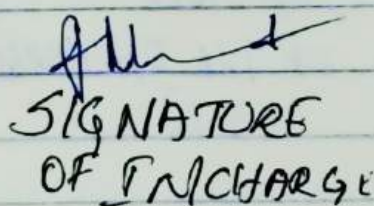 SIGNATURE
OF INCHARGE